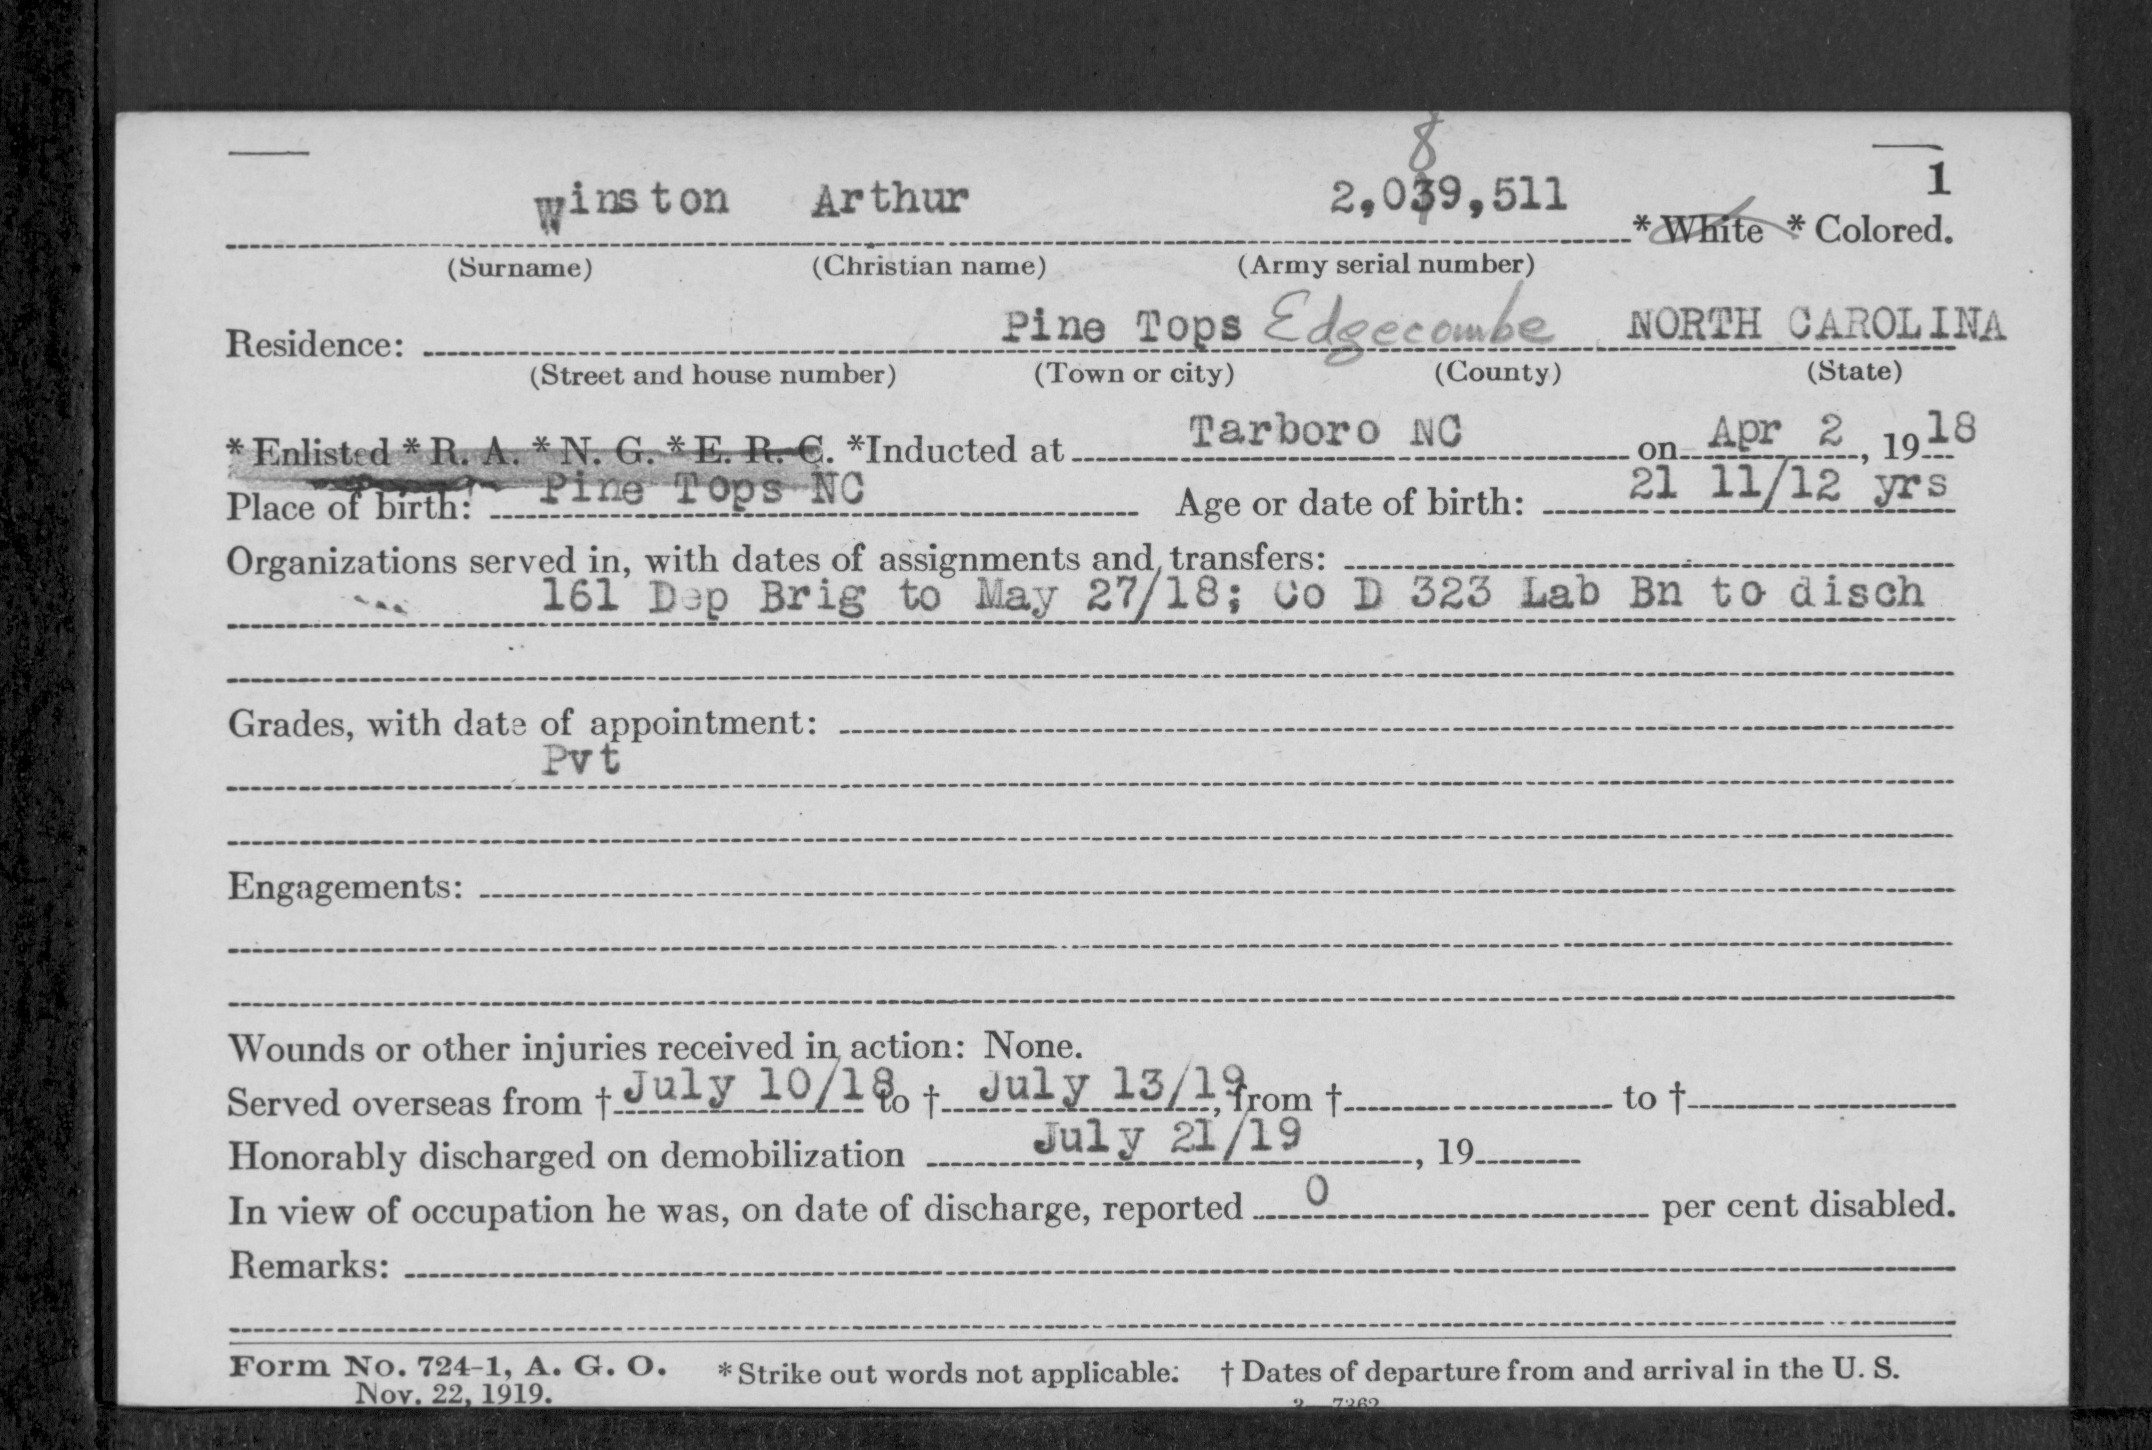 8
1
Winston Arthur 2,039,511 * White * Colored.
(Surname) (Christian name) (Army serial number)
Residence: Pine Tops Edgecombe NORTH CAROLINA
(Street and house number) (Town or city) (County) (State)
* Enlisted * R. A. * N. G. * E. R. C. *Inducted at Tarboro NC on Apr 2, 1918
Place of birth: Pine Tops NC Age or date of birth: 21 11/12 yrs
Organizations served in, with dates of assignments and transfers:
161 Dep Brig to May 27/18; Co D 323 Lab Bn to disch
Grades, with date of appointment:
Pvt
Engagements:
Wounds or other injuries received in action: None.
Served overseas from † July 10/18 to † July 13/19, from † to †
Honorably discharged on demobilization July 21/19, 19
In view of occupation he was, on date of discharge, reported 0 per cent disabled.
Remarks:
Form No. 724-1, A. G. O. * Strike out words not applicable. † Dates of departure from and arrival in the U. S.
Nov. 22, 1919.